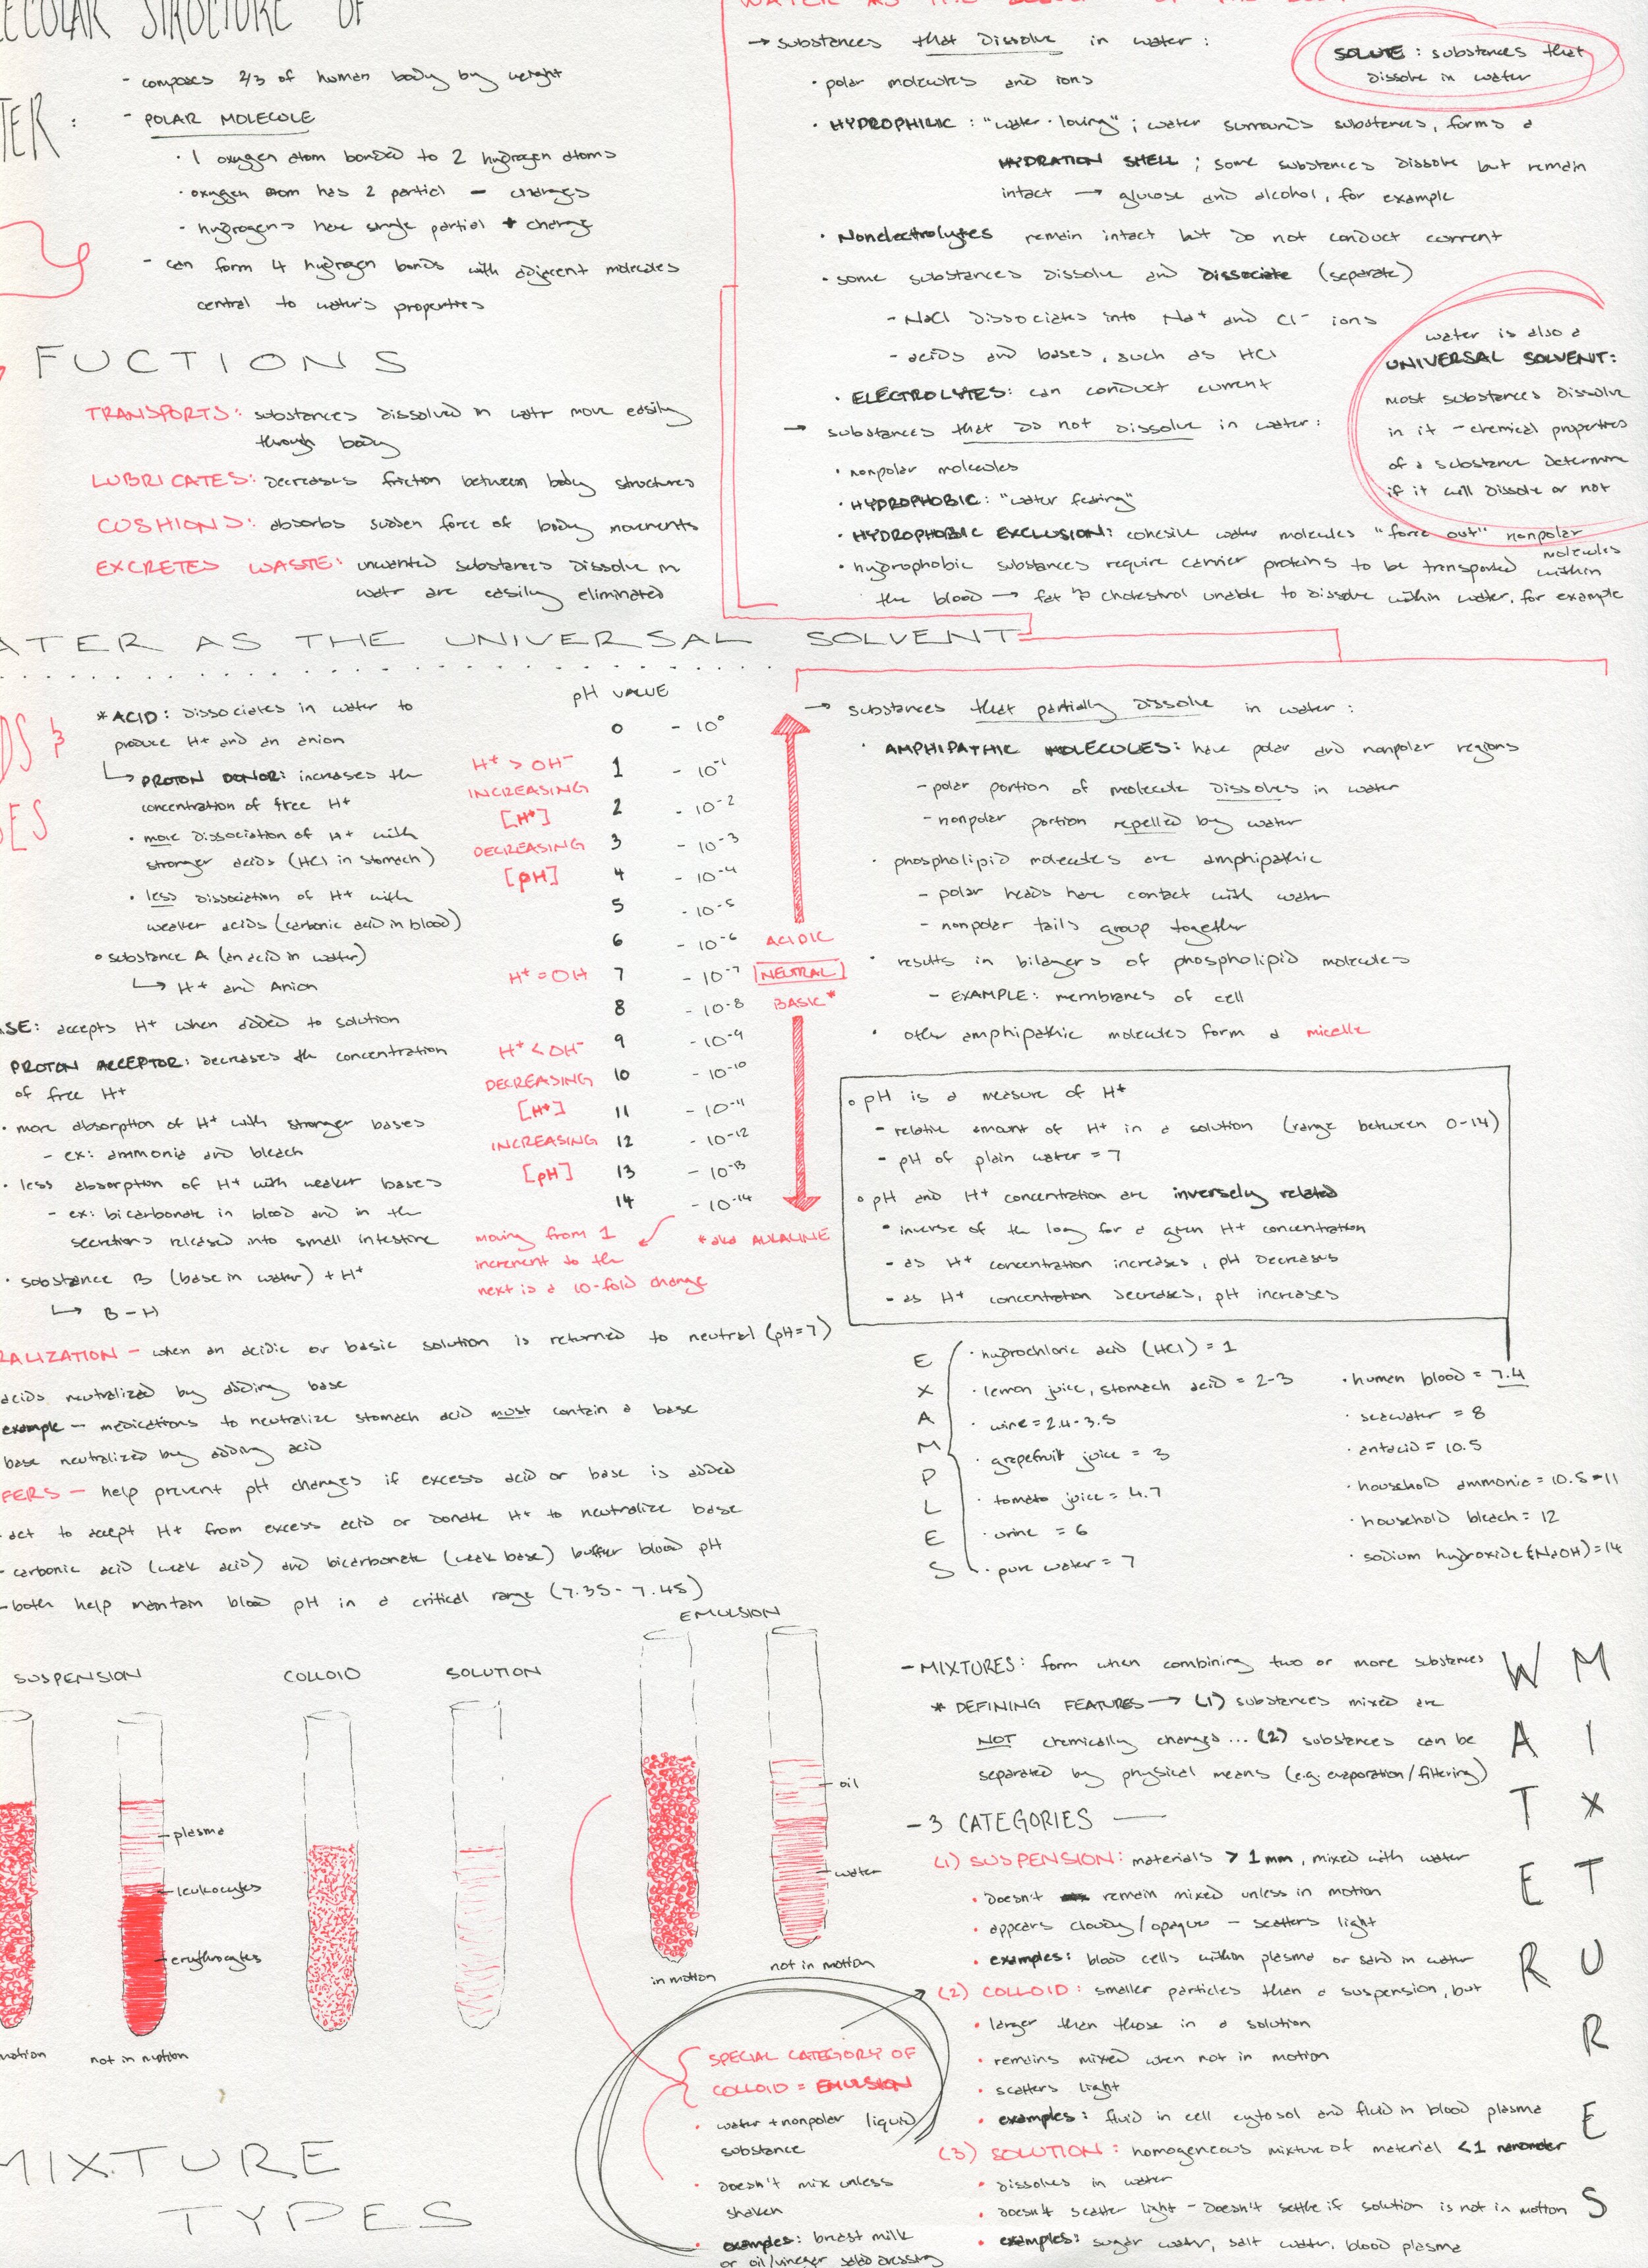 ECULAR STRUCTURE OF
TER :
- composes 2/3 of human body by weight
- POLAR MOLECULE
· 1 oxygen atom bonded to 2 hydrogen atoms
· oxygen atom has 2 partial - charges
· hydrogens have single partial + charge
- can form 4 hydrogen bonds with adjacent molecules
central to water's properties
FUCTIONS
TRANSPORTS: substances dissolved in watr move easily
through body
LUBRICATES: decreases friction between body structures
CUSHIONS: absorbs sudden force of body movements
EXCRETES WASTE: unwanted substances dissolve in
watr are easily eliminated
→ substances that dissolve in water:
SOLUTE: substances that
dissolve in water
· polar molecules and ions
· HYDROPHILIC: "water-loving"; water surrounds substances, forms a
HYDRATION SHELL; some substances dissolve but remain
intact → glucose and alcohol, for example
· Nonelectrolytes remain intact but do not conduct current
· some substances dissolve and dissociate (separate)
- NaCl dissociates into Na+ and Cl- ions
- acids and bases, such as HCl
· ELECTROLYTES: can conduct current
water is also a
UNIVERSAL SOLVENT:
most substances dissolve
in it - chemical properties
of a substance determine
if it will dissolve or not
→ substances that do not dissolve in water:
· nonpolar molecules
· HYDROPHOBIC: "water fearing"
· HYDROPHOBIC EXCLUSION: cohesive water molecules "force out" nonpolar
molecules
· hydrophobic substances require carrier proteins to be transported within
the blood → fat & cholestrol unable to dissolve within water, for example
ATER AS THE UNIVERSAL SOLVENT
DS &
SES
* ACID: dissociates in water to
produce H+ and an anion
↳ PROTON DONOR: increases the
concentration of free H+
· more dissociation of H+ with
stronger acids (HCl in stomach)
· less dissociation of H+ with
weaker acids (carbonic acid in blood)
o substance A (an acid in water)
↳ H+ and Anion
ASE: accepts H+ when added to solution
PROTON ACCEPTOR: decreases the concentration
of free H+
· more absorption of H+ with stronger bases
- ex: ammonia and bleach
· less absorption of H+ with weaker bases
- ex: bicarbonate in blood and in the
secretions released into small intestine
· substance B (base in water) + H+
↳ B-H
pH VALUE
0 - 10^0
1 - 10^-1
2 - 10^-2
3 - 10^-3
4 - 10^-4
5 - 10^-5
6 - 10^-6 ACIDIC
H+ = OH 7 - 10^-7 NEUTRAL
8 - 10^-8 BASIC*
9 - 10^-9
10 - 10^-10
11 - 10^-11
12 - 10^-12
13 - 10^-13
14 - 10^-14
H+ > OH-
INCREASING
[H+]
DECREASING
[pH]
H+ < OH-
DECREASING
[H+]
INCREASING
[pH]
moving from 1
increment to the
next is a 10-fold change
* aka ALKALINE
→ substances that partially dissolve in water:
· AMPHIPATHIC MOLECULES: have polar and nonpolar regions
- polar portion of molecule dissolves in water
- nonpolar portion repelled by water
· phospholipid molecules are amphipathic
- polar heads have contact with water
- nonpolar tails group together
· results in bilayers of phospholipid molecules
- EXAMPLE: membranes of cell
· other amphipathic molecules form a micelle
o pH is a measure of H+
- relative amount of H+ in a solution (range between 0-14)
- pH of plain water = 7
o pH and H+ concentration are inversely related
· inverse of the log for a given H+ concentration
- as H+ concentration increases, pH decreases
- as H+ concentration decreases, pH increases
RALIZATION - when an acidic or basic solution is returned to neutral (pH=7)
acids neutralized by adding base
example - medications to neutralize stomach acid must contain a base
base neutralized by adding acid
FERS - help prevent pH changes if excess acid or base is added
- act to accept H+ from excess acid or donate H+ to neutralize base
- carbonic acid (weak acid) and bicarbonate (weak base) buffer blood pH
- both help maintain blood pH in a critical range (7.35-7.45)
EXAMPLES
· hydrochloric acid (HCl) = 1
· lemon juice, stomach acid = 2-3
· wine = 2.4-3.5
· grapefruit juice = 3
· tomato juice = 4.7
· urine = 6
· pure water = 7
· human blood = 7.4
· seawater = 8
· antacid = 10.5
· household ammonia = 10.5-11
· household bleach = 12
· sodium hydroxide (NaOH) = 14
SUSPENSION
COLLOID
SOLUTION
EMULSION
plasma
leukocytes
erythrocytes
oil
water
motion
not in motion
in motion
not in motion
MIXTURE
TYPES
SPECIAL CATEGORY OF
COLLOID = EMULSION
· water + nonpolar liquid
substance
· doesn't mix unless
shaken
· examples: breast milk
or oil/vinegar salad dressing
WATER
MIXTURES
- MIXTURES: form when combining two or more substances
* DEFINING FEATURES → (1) substances mixed are
NOT chemically changed... (2) substances can be
separated by physical means (e.g. evaporation/filtering)
- 3 CATEGORIES —
(1) SUSPENSION: materials > 1 mm, mixed with water
· doesn't remain mixed unless in motion
· appears cloudy/opaque - scatters light
· examples: blood cells within plasma or sand in water
(2) COLLOID: smaller particles than a suspension, but
· larger than those in a solution
· remains mixed when not in motion
· scatters light
· examples: fluid in cell cytosol and fluid in blood plasma
(3) SOLUTION: homogeneous mixture of material <1 nanometer
· dissolves in water
· doesn't scatter light - doesn't settle if solution is not in motion
· examples: sugar water, salt water, blood plasma